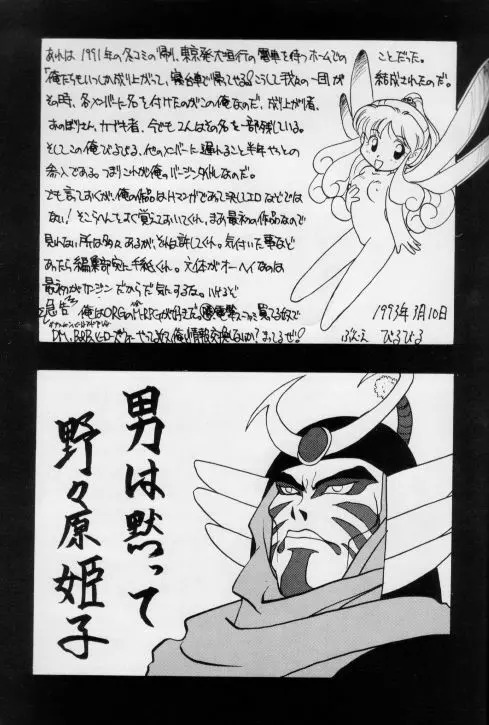 あれは1991年の冬コミの帰り、東京発大垣行の電車を待つホームでのことだった。
「俺たちもいつか成り上がって、寝台車で帰ってやる!」こうして我々の一団が結成されたのだ。
その時、各メンバーに名を付けたのがこの俺なのだ。成り上がり者、
あのぼりさん、カブキ者、今でもこんなその名を一部残している。
そしてこの俺びるびる、他のメンバーに遅れること半年やっとの
参入である。つまりこれが俺のバージン
でも言っておくが、俺の作品はHマンガであって決してエロなどでは
ない!そこらへんをよく覚えておいてくれ。まあ最初の作品なので
見れない所は多々あるが、それは許してくれ。気付いた事など
あったら編集部宛に手紙くれ。文体がオーヘイなのは
最初がカンジンだからだ気にするな。
俺はORGのM-RPGが好きだ。買ってる奴で
やってる奴、俺と情報交換しないか?まってるぜ!
1993年3月10日
ぶくえ びるびる
男は黙って
野々原姫子